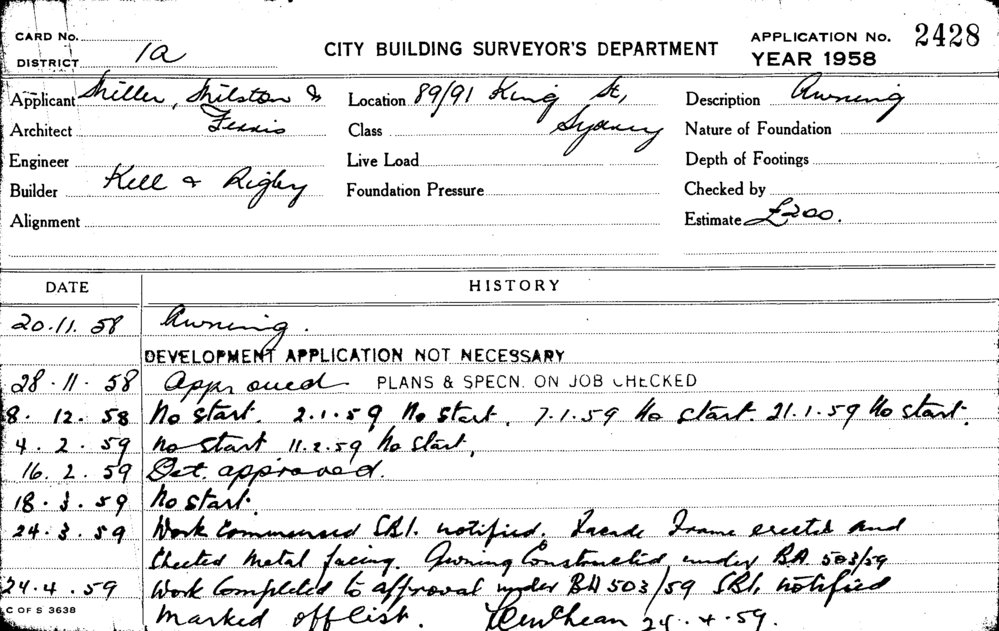 CARD No.
DISTRICT 1a
CITY BUILDING SURVEYOR'S DEPARTMENT
APPLICATION No. 2428
YEAR 1958
Applicant Miller, Milston &
Architect Ferris
Engineer
Builder Kell & Rigby
Alignment
Location 89/91 King St,
Class Sydney
Live Load
Foundation Pressure
Description Awning
Nature of Foundation
Depth of Footings
Checked by
Estimate £200.
DATE HISTORY
20.11.58 Awning.
DEVELOPMENT APPLICATION NOT NECESSARY
28.11.58 Approved PLANS & SPECN. ON JOB CHECKED
8.12.58 No start. 2.1.59 No start. 7.1.59 No start. 21.1.59 No start.
4.2.59 No start 11.2.59 No start.
16.2.59 Det. approved.
18.3.59 No start.
24.3.59 Work Commenced SBI. notified. Facade Frame erected and
Sheeted Metal facing. Awning Constructed under BA 503/59
24.4.59 Work Completed to approval under BA 503/59 SBI. notified
Marked off List. 24.4.59.
C OF S 3638